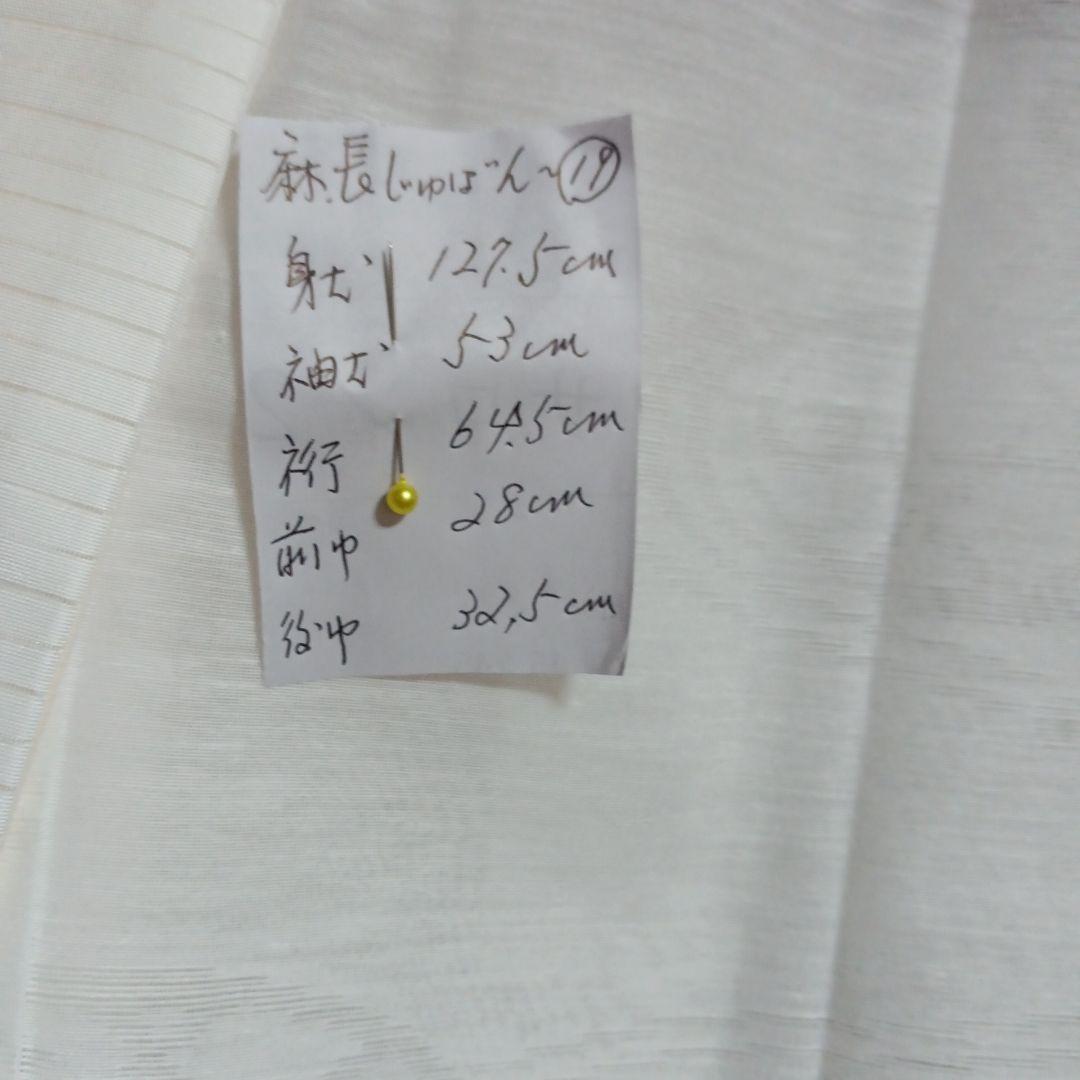 麻長じゅばん~⑲
身丈 127.5cm
袖丈 53cm
裄 64.5cm
前巾 28cm
後巾 32,5cm